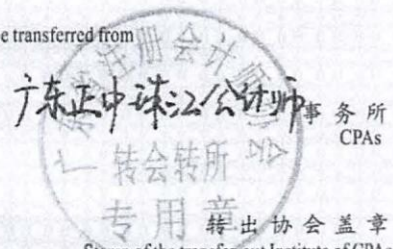 e transferred from
广东正中珠江会计师事务所
CPAs
广东省注册会计师协会
转会转所
专用章
转出协会盖章
Stamp of the transfer-out Institute of CPAs